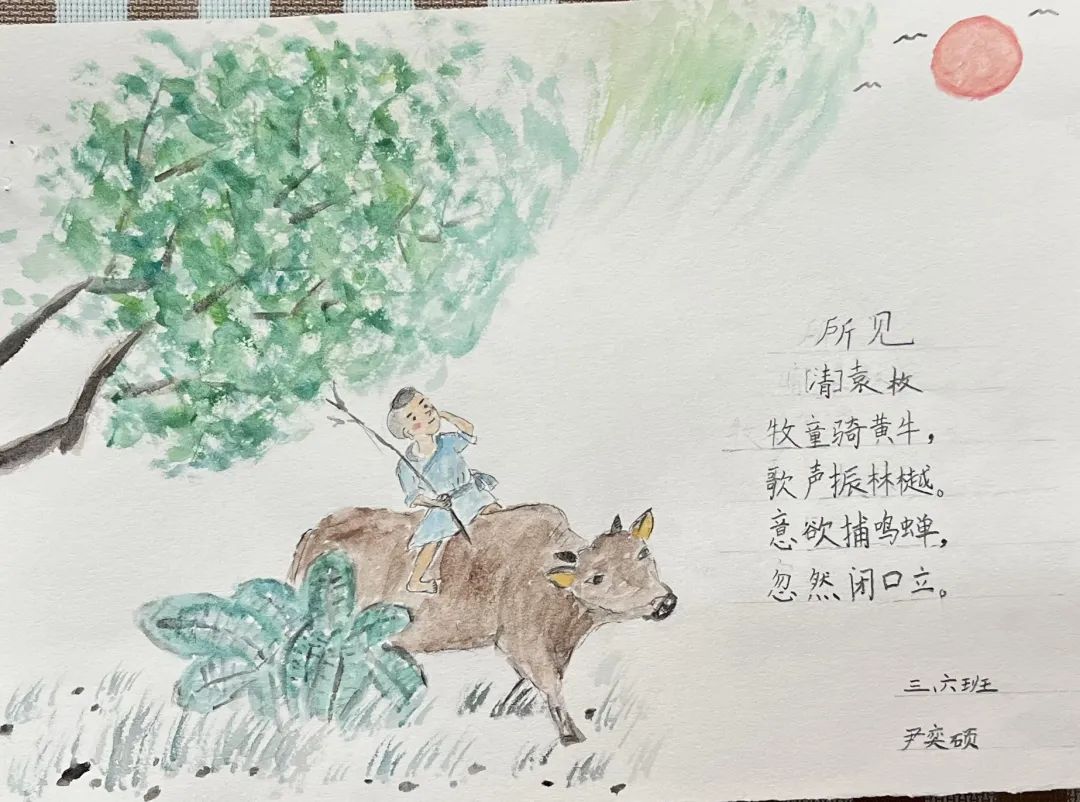 所见
[清]袁枚
牧童骑黄牛，
歌声振林樾。
意欲捕鸣蝉，
忽然闭口立。
三、六班
尹奕硕